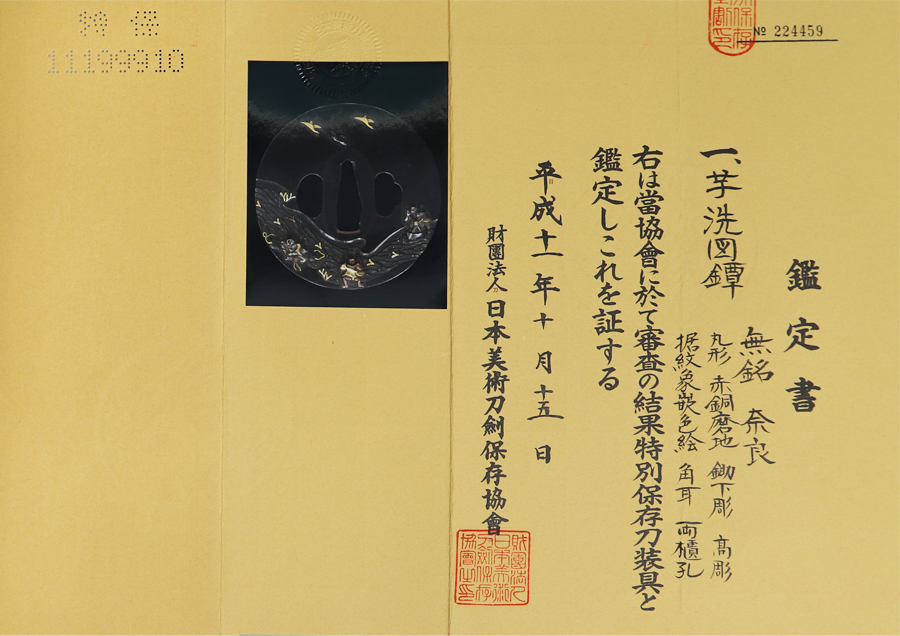 鑑定書
一、芋洗図鐔
無銘 奈良
丸形 赤銅磨地 鋤下彫 高彫
据紋象嵌色絵 角耳 両櫃孔
右は當協會に於て審査の結果特別保存刀装具と
鑑定しこれを証する
平成十一年十月十五日
財團法人 日本美術刀劍保存協會
№ 224459
特保
11199910
財團法人日本美術刀劍保存協會之印